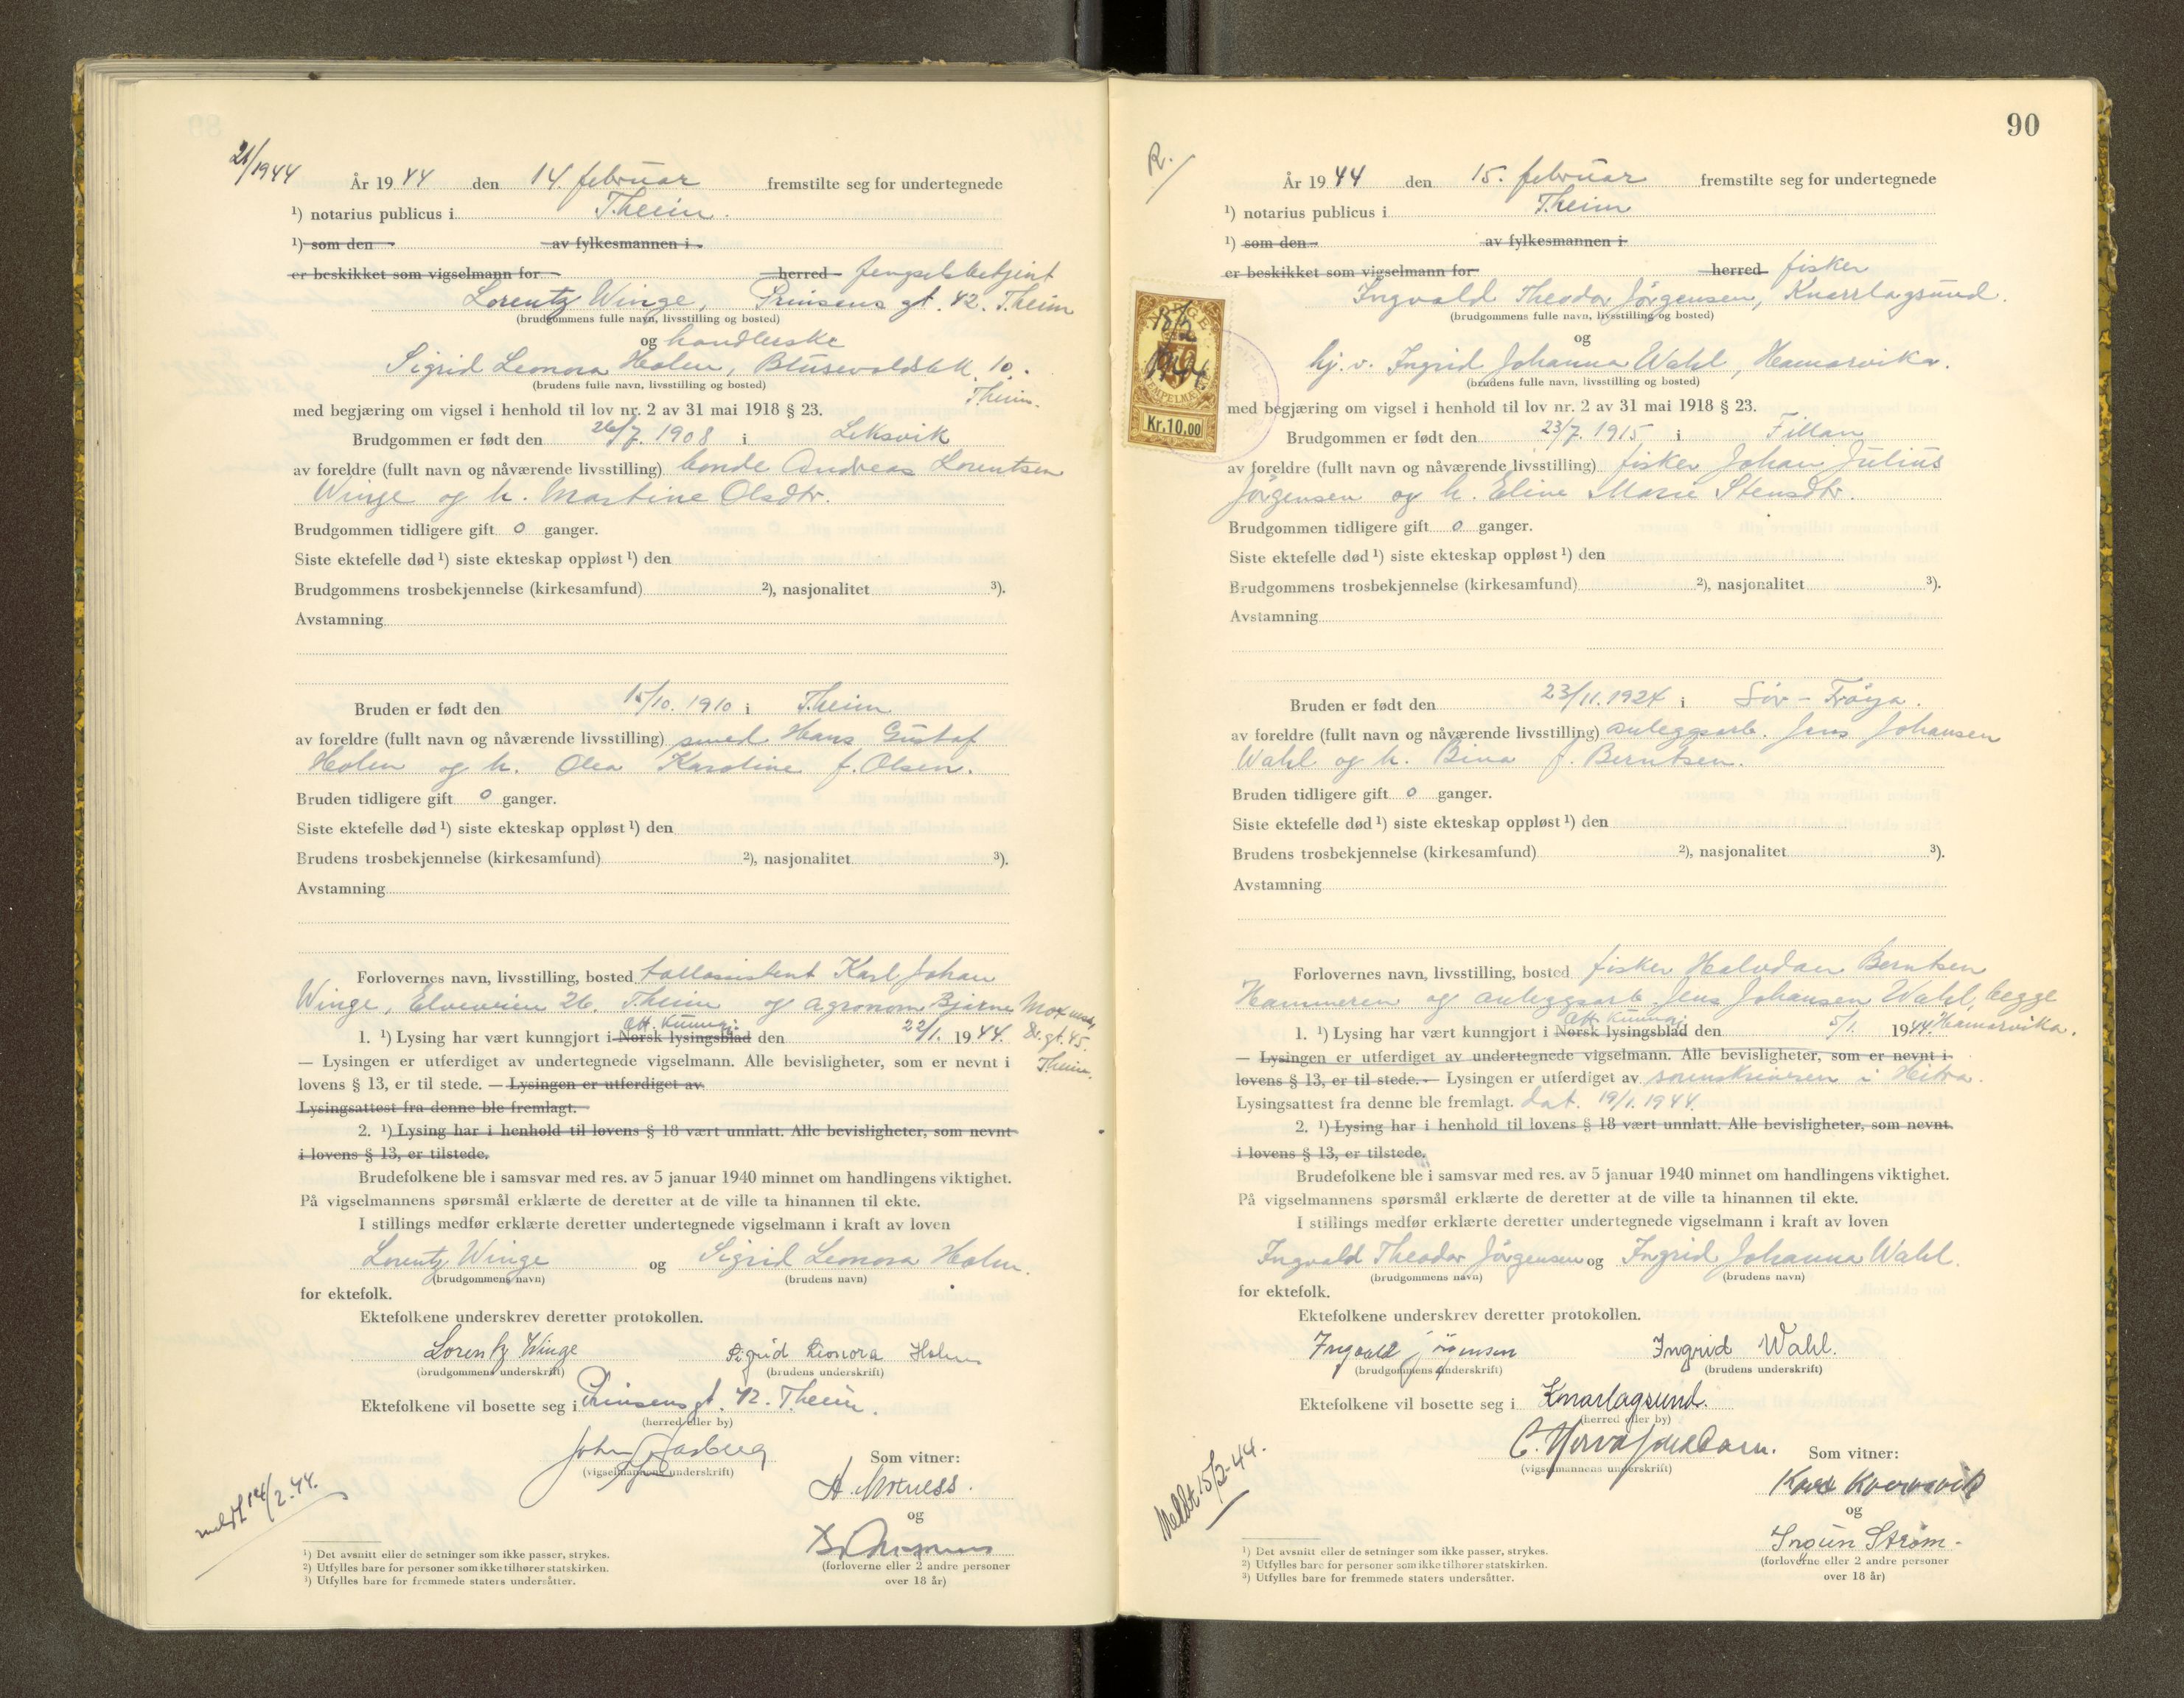 21/1944
År 1944 den 14. februar fremstilte seg for undertegnede
¹) notarius publicus i T.heim.
¹) som den av fylkesmannen i
er beskikket som vigselmann for herred fengselsbetjent
Lorentz Winge, Prinsens gt. 42. T.heim
(brudgommens fulle navn, livsstilling og bosted)
og handlerske
Sigrid Leonora Holm, 10.
(brudens fulle navn, livsstilling og bosted)
T.heim.
med begjæring om vigsel i henhold til lov nr. 2 av 31 mai 1918 § 23.
Brudgommen er født den 26/7. 1908 i Leksvik
av foreldre (fullt navn og nåværende livsstilling) bonde Andreas Lorentsen
Winge og h. Martine Olsdtr.
Brudgommen tidligere gift 0 ganger.
Siste ektefelle død ¹) siste ekteskap oppløst ¹) den
Brudgommens trosbekjennelse (kirkesamfund) ²), nasjonalitet ³).
Avstamning
Bruden er født den 15/10. 1910 i T.heim
av foreldre (fullt navn og nåværende livsstilling) smed Hans Gustaf
Holm og h. Olea Karoline f. Olsen.
Bruden tidligere gift 0 ganger.
Siste ektefelle død ¹) siste ekteskap oppløst ¹) den
Brudens trosbekjennelse (kirkesamfund) ²), nasjonalitet ³).
Avstamning
Forlovernes navn, livsstilling, bosted tollassistent Karl Johan
Winge, Elveveien 26. T.heim og agronom Bjarne Moxness,
Off. kunngj.
1. ¹) Lysing har vært kunngjort i Norsk lysingsblad den 22/1. 1944. gt. 45.
— Lysingen er utferdiget av undertegnede vigselmann. Alle bevisligheter, som er nevnt i T.heim.
lovens § 13, er til stede. — Lysingen er utferdiget av
Lysingsattest fra denne ble fremlagt.
2. ¹) Lysing har i henhold til lovens § 18 vært unnlatt. Alle bevisligheter, som nevnt
i lovens § 13, er tilstede.
Brudefolkene ble i samsvar med res. av 5 januar 1940 minnet om handlingens viktighet.
På vigselmannens spørsmål erklærte de deretter at de ville ta hinannen til ekte.
I stillings medfør erklærte deretter undertegnede vigselmann i kraft av loven
Lorentz Winge og Sigrid Leonora Holm.
(brudgommens navn) (brudens navn)
for ektefolk.
Ektefolkene underskrev deretter protokollen.
Lorentz Winge Sigrid Leonora Holm
(brudgommens underskrift) (brudens underskrift)
Ektefolkene vil bosette seg i Prinsens gt. 42. T.heim.
(herred eller by)
John Aasberg Som vitner:
(vigselmannens underskrift)
meldt 14/2.-44.
og
¹) Det avsnitt eller de setninger som ikke passer, strykes.
²) Utfylles bare for personer som ikke tilhører statskirken. (forloverne eller 2 andre personer
³) Utfylles bare for fremmede staters undersåtter. over 18 år)
90
R.
År 1944 den 15. februar fremstilte seg for undertegnede
¹) notarius publicus i T.heim
¹) som den av fylkesmannen i
er beskikket som vigselmann for herred fisker
Ingvald Theodor Jörgensen, Knarrlagsund.
(brudgommens fulle navn, livsstilling og bosted)
og
hj. v. Ingrid Johanna Wahl, Hamarvika.
(brudens fulle navn, livsstilling og bosted)
15/2
1944
Kr.10,00
med begjæring om vigsel i henhold til lov nr. 2 av 31 mai 1918 § 23.
Brudgommen er født den 23/7. 1915 i Fillan
av foreldre (fullt navn og nåværende livsstilling) fisker Johan Julius
Jörgensen og h. Eline Marie Stensdtr.
Brudgommen tidligere gift 0 ganger.
Siste ektefelle død ¹) siste ekteskap oppløst ¹) den
Brudgommens trosbekjennelse (kirkesamfund) ²), nasjonalitet ³).
Avstamning
Bruden er født den 23/11. 1924 i Sör-Fröya.
av foreldre (fullt navn og nåværende livsstilling) anleggsarb. Jens Johansen
Wahl og h. Bina f. Berntsen.
Bruden tidligere gift 0 ganger.
Siste ektefelle død ¹) siste ekteskap oppløst ¹) den
Brudens trosbekjennelse (kirkesamfund) ²), nasjonalitet ³).
Avstamning
Forlovernes navn, livsstilling, bosted fisker Halvdan Berntsen
Hammeren og anleggsarb. Jens Johansen Wahl, begge
Off. kunngj.
1. ¹) Lysing har vært kunngjort i Norsk lysingsblad den 5/1. 1944. Hamarvika.
— Lysingen er utferdiget av undertegnede vigselmann. Alle bevisligheter, som er nevnt i
lovens § 13, er til stede. — Lysingen er utferdiget av sorenskriveren i Hitra.
Lysingsattest fra denne ble fremlagt. dat. 19/1. 1944.
2. ¹) Lysing har i henhold til lovens § 18 vært unnlatt. Alle bevisligheter, som nevnt
i lovens § 13, er tilstede.
Brudefolkene ble i samsvar med res. av 5 januar 1940 minnet om handlingens viktighet.
På vigselmannens spørsmål erklærte de deretter at de ville ta hinannen til ekte.
I stillings medfør erklærte deretter undertegnede vigselmann i kraft av loven
Ingvald Theodor Jörgensen og Ingrid Johanna Wahl.
(brudgommens navn) (brudens navn)
for ektefolk.
Ektefolkene underskrev deretter protokollen.
Ingvald Jörgensen Ingrid Wahl.
(brudgommens underskrift) (brudens underskrift)
Ektefolkene vil bosette seg i Knarlagsund.
(herred eller by)
Som vitner:
(vigselmannens underskrift)
Meldt 15/2-44.
og
Strøm
¹) Det avsnitt eller de setninger som ikke passer, strykes.
²) Utfylles bare for personer som ikke tilhører statskirken. (forloverne eller 2 andre personer
³) Utfylles bare for fremmede staters undersåtter. over 18 år)